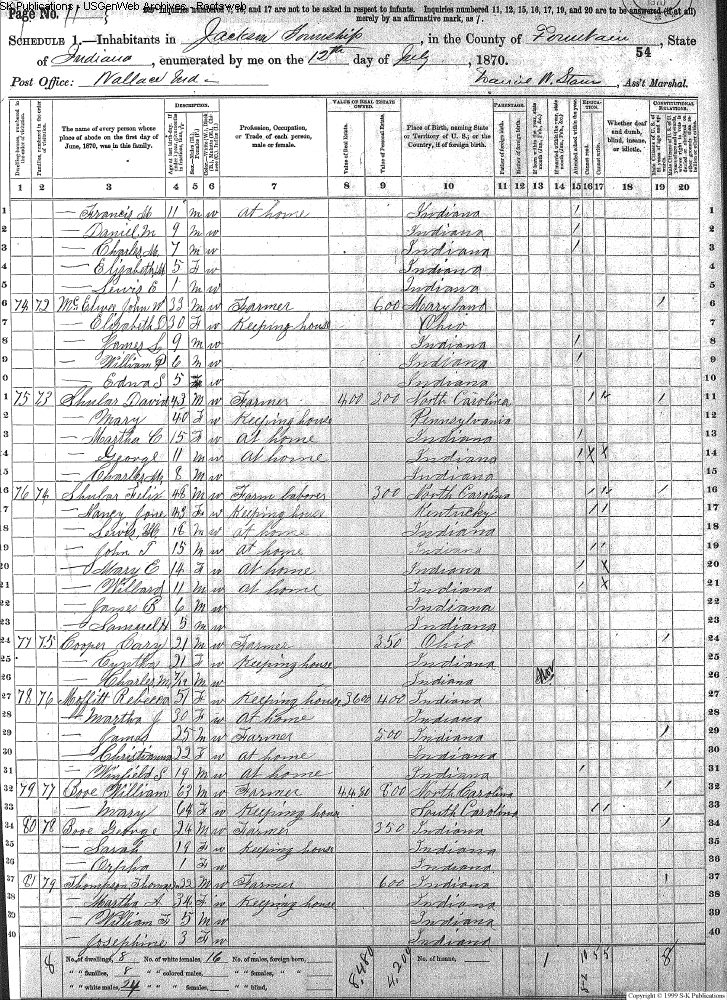 SK Publications - USGenWeb Archives - Rootsweb
Page No. 11
Inquiries numbered 7, 16, and 17 are not to be asked in respect to infants. Inquiries numbered 11, 12, 15, 16, 17, 19, and 20 are to be answered (if at all) merely by an affirmative mark, as /.
SCHEDULE 1.—Inhabitants in Jackson Township, in the County of Fountain, State
of Indiana, enumerated by me on the 12th day of July, 1870.
54
Post Office: Wallace Ind, Ass't Marshal.
DESCRIPTION. VALUE OF REAL ESTATE OWNED. PARENTAGE. EDUCATION. CONSTITUTIONAL RELATIONS.
The name of every person whose place of abode on the first day of June, 1870, was in this family.
Profession, Occupation, or Trade of each person, male or female.
Value of Real Estate.
Value of Personal Estate.
Place of Birth, naming State or Territory of U. S.; or the Country, if of foreign birth.
Father of foreign birth.
Mother of foreign birth.
Attended school within the year.
Cannot read.
Cannot write.
Whether deaf and dumb, blind, insane, or idiotic.
1 2 3 4 5 6 7 8 9 10 11 12 13 14 15 16 17 18 19 20
1 — Francis M 11 M W at home Indiana / 1
2 — Daniel M 9 M W Indiana / 2
3 — Charles M 7 M W Indiana / 3
4 — Elizabeth 5 F W Indiana 4
5 — Lewis E 1 M W Indiana 5
6 74 72 John W 33 M W Farmer 600 Maryland / 6
7 — Elizabeth D 30 F W Keeping house Ohio 7
8 — James L 9 M W Indiana / 8
9 — William P 6 M W Indiana / 9
0 — Edna S 5 F W Indiana 10
1 75 73 Shular David 43 M W Farmer 400 300 North Carolina / / / 11
2 — Mary 40 F W Keeping house Pennsylvania 12
13 — Martha C 15 F W at home Indiana / 13
14 — George 11 M W at home Indiana / X X 14
15 — Charles M 8 M W Indiana 15
16 76 74 Shular Felix 48 M W Farm laborer 300 North Carolina / / / 16
17 — Nancy Jane 43 F W Keeping house Kentucky / / 17
18 — Lewis W 18 M W at home Indiana 18
19 — John T 15 M W at home Indiana / / 19
20 — Mary E 14 F W at home Indiana / X 20
21 — Willard 11 M W at home Indiana / X 21
22 — James B 6 M W Indiana 22
23 — Samuel H 5 M W Indiana 23
24 77 75 Cooper Cary 21 M W Farmer 350 Ohio / 24
25 — Cyntha 21 F W Keeping house Indiana 25
26 — Charles M 7/12 M W Indiana Nov 26
27 78 76 Moffitt Rebecca 51 F W Keeping house 3600 400 Indiana 27
28 — Martha J 30 F W at home Indiana 28
29 — James 25 M W Farmer 500 Indiana / 29
30 — Christianna 22 F W at home Indiana 30
31 — Winfield S 19 M W at home Indiana / 31
32 79 77 Booe William 63 M W Farmer 4480 800 North Carolina / 32
33 — Mary 64 F W Keeping house South Carolina / / 33
34 80 78 Booe George 24 M W Farmer 350 Indiana / 34
35 — Sarah 19 F W Keeping house Indiana 35
36 — Orpha 1 F W Indiana 36
37 81 79 Thompson Thomas 32 M W Farmer 600 Indiana / 37
38 — Martha A 34 F W Keeping house Indiana 38
39 — William F 5 M W Indiana 39
40 — Josephine 3 F W Indiana 40
8 No. of dwellings, 8 No. of white females, 16 No. of males, foreign born, 8,480 4,200 No. of insane, 1 10 5 5 8
" " families, 8 " " colored males, " " females, " "
" " white males, 24 " " " females, " " blind,
Copyright © 1999 S-K Publications